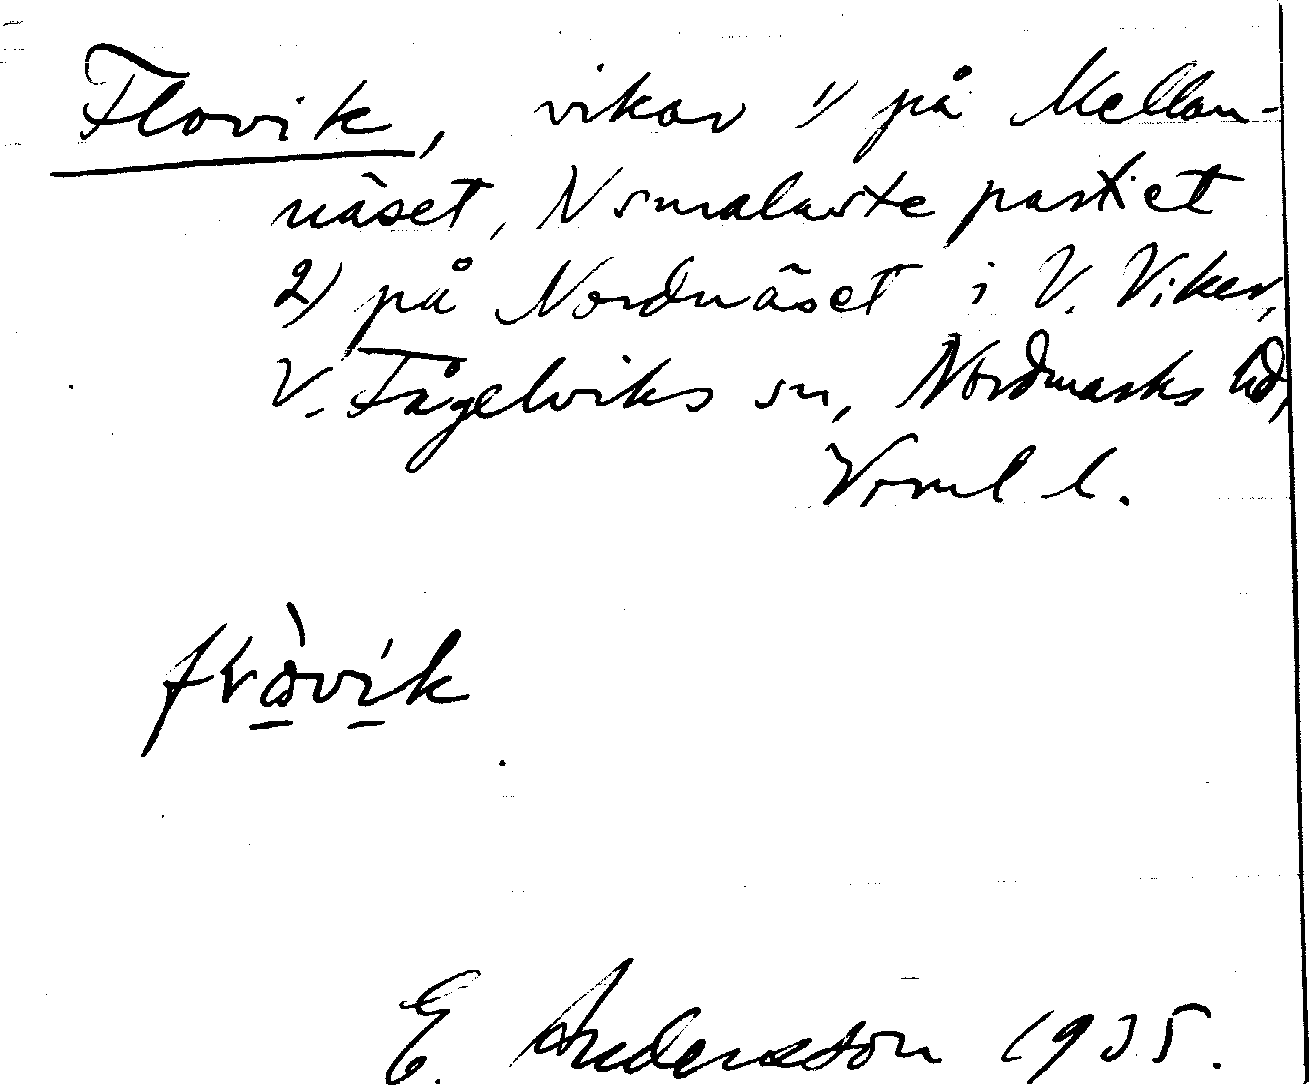 Flovik, vikar 1) på Mellan-
näset, N smalaste partiet
2) på Nordnäset i V. Viker,
V. Fågelviks sn, Nordmarks hd,
Vrml l.
E. Andersson 1935.